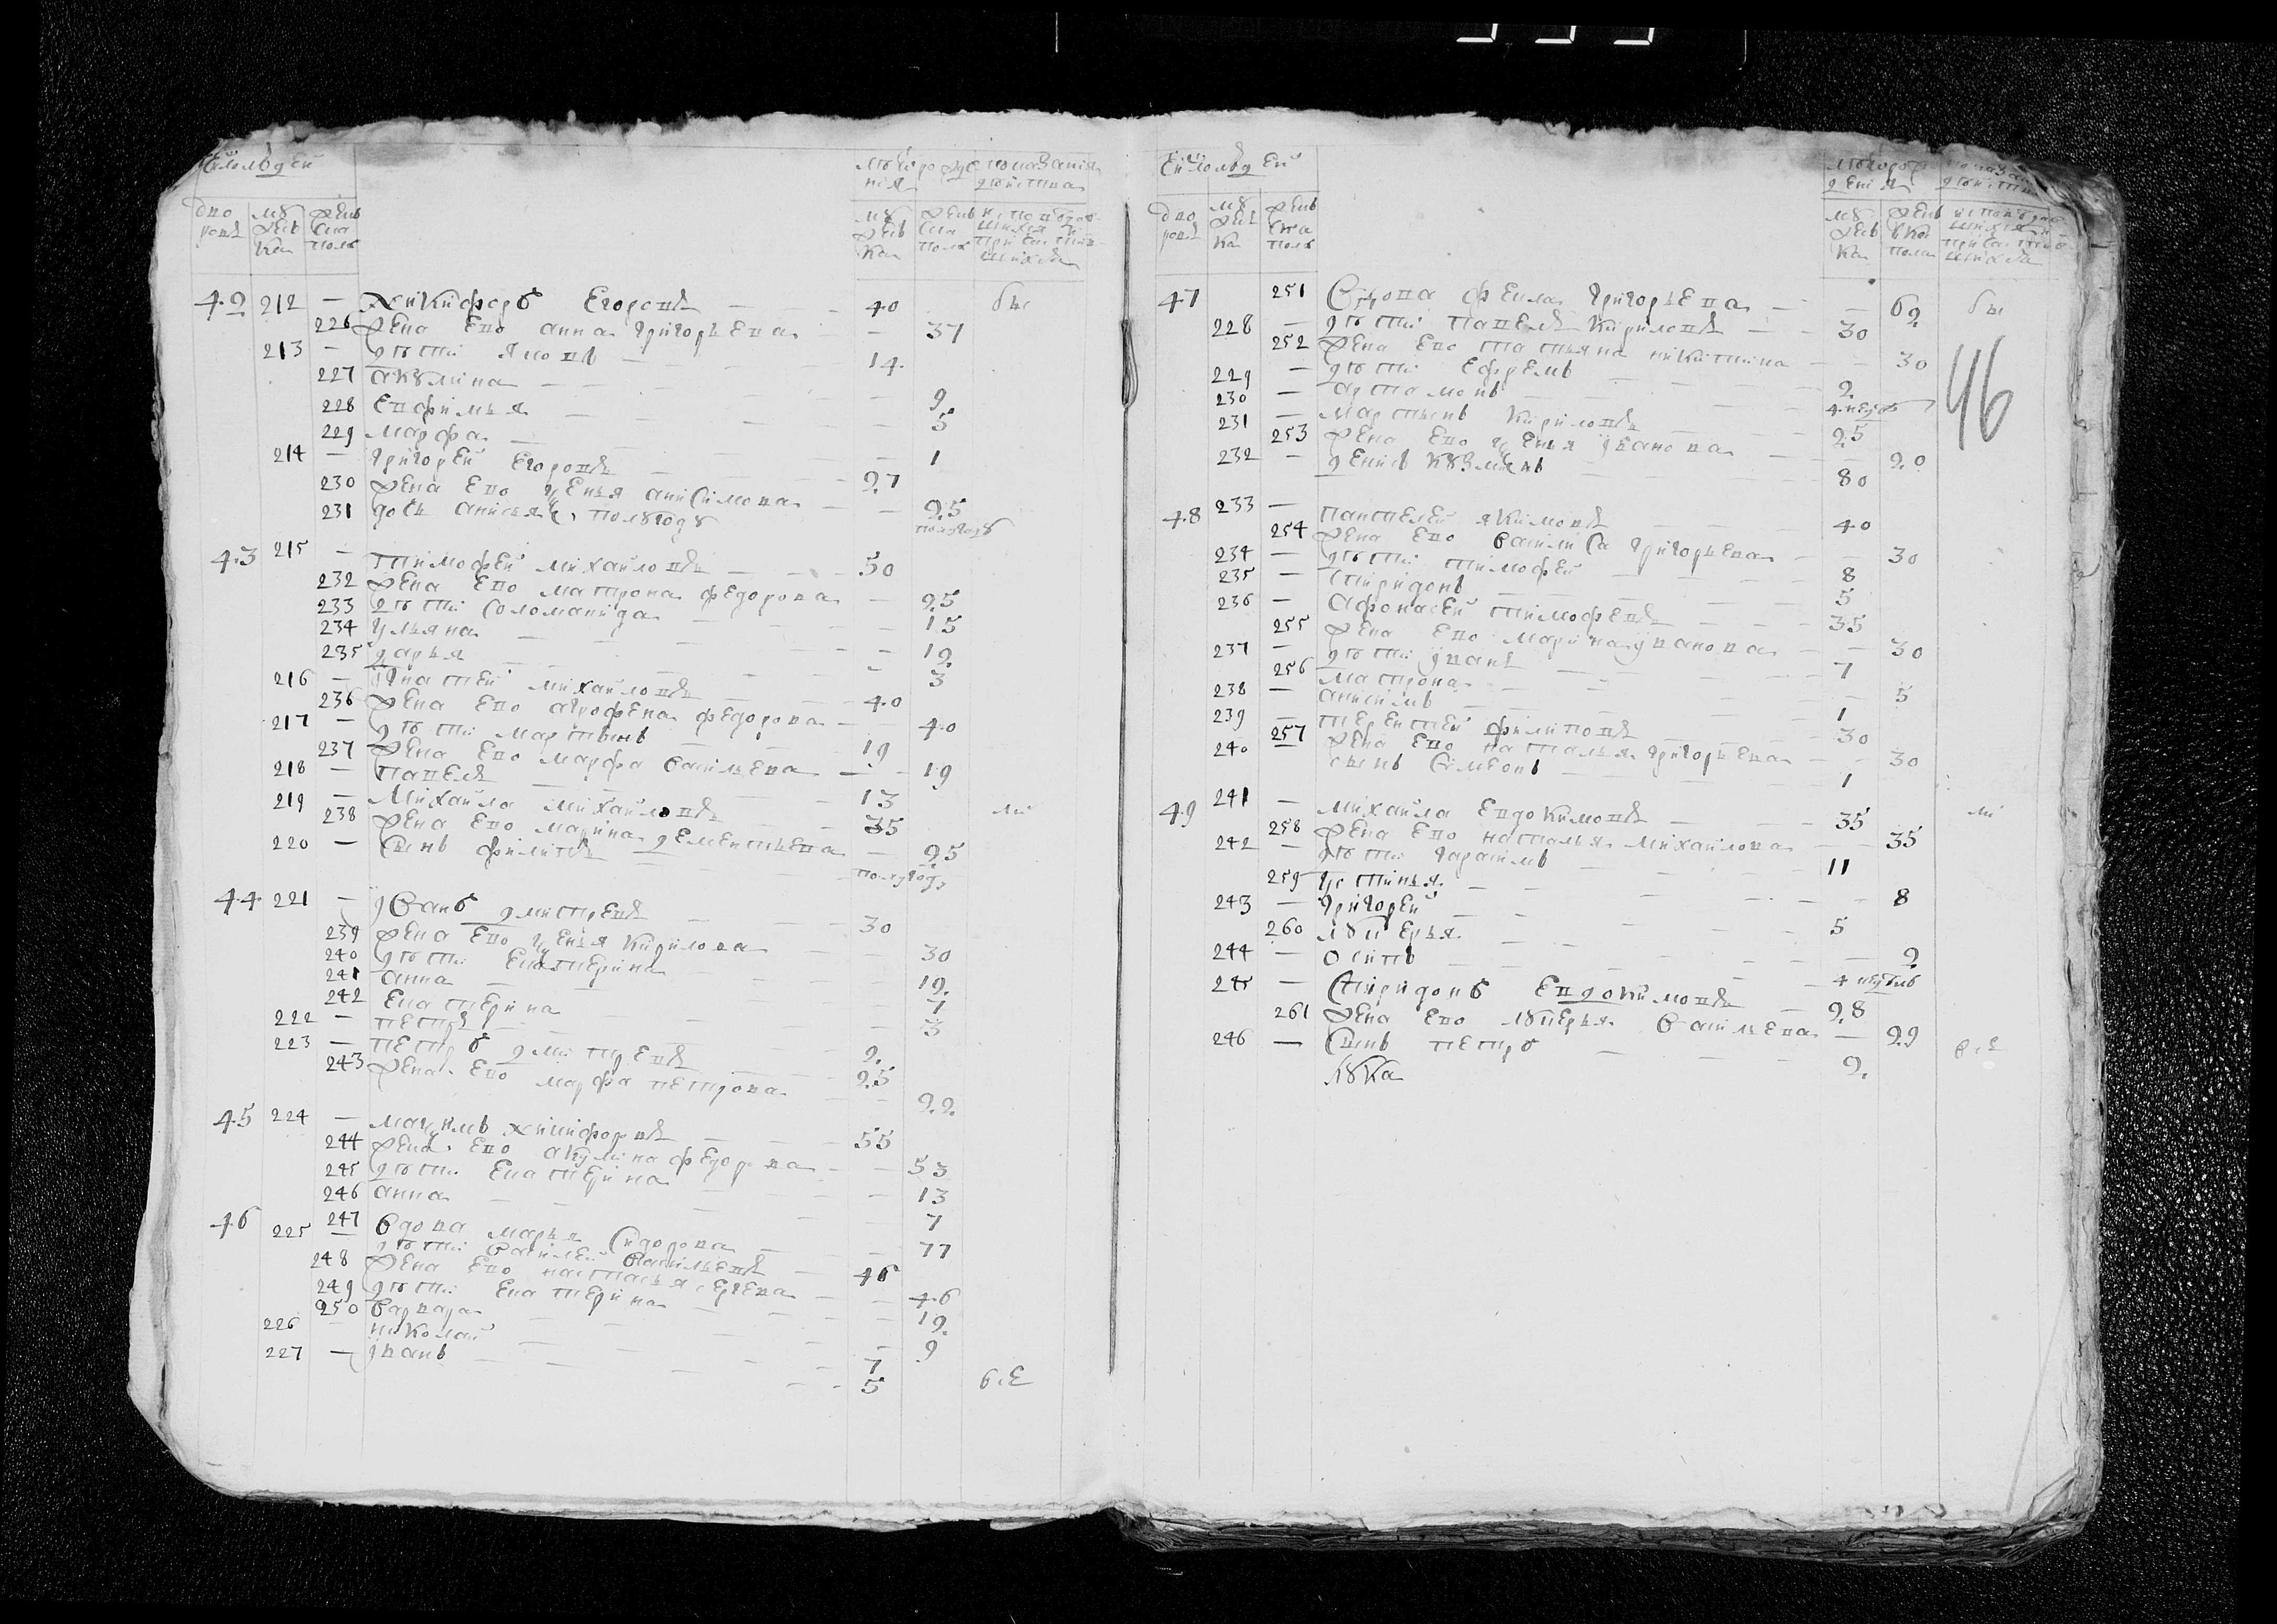 Числолюдей
Мѣ
рожде
нїя
показанїя
дѣйства
дво
ровъ
муж
ска
женъ
ска
полъ
муж
ска
женъ
ска
полъ
42 212 — Никифоръ Егоровъ — 40 бы
226 жена Ево анна григорьева — 37
213 — дѣти яковъ — 14
227 акулина — 9
228 Евфимья — 5
229 марфа — 1
214 — григорей Егоровъ — 27
230 жена Ево ксенья анисимова — 25
231 дочь анисья полугоду полугоду
43 215 — тимофей михайловъ — 50
232 жена Ево матрона федорова — 25
233 дѣти соломанида — 15
234 ульяна — 12
235 дарья — 3
216 — игнатей михайловъ — 40
236 жена Ево агрофена федорова — 40
217 — дѣти мартынъ — 19
237 жена Ево марфа васильева — 19
218 — павелъ — 13
219 — михайла михайловъ — 35 ли
238 жена Ево марина дементьева — 25
220 — сынъ филипъ — полугоду
44 221 — Иванъ дмитревъ — 30
239 жена Ево ксенья кирилова — 30
240 дѣти Екатерина — 12
241 анна — 7
242 Екатерина — 3
222 — петръ — 2
223 — петръ дмитревъ — 25
243 жена Ево марфа петрова — 22
45 224 — максимъ никифоровъ — 55
244 жена Ево акулина федорова — 53
245 дѣти Екатерина — 13
246 анна — 7
46 247 вдова марья сидорова — 77
225 — дѣти василей васильевъ — 46
248 жена Ево настасья сергева — 46
249 дѣти Екатерина — 12
250 варвара — 9
226 — николай — 7
227 — иванъ — 5 всѣ
Числолюдей
Мѣ
рож
денїя
показа
дѣйства
дво
ровъ
муж
ска
женъ
ска
полъ
муж
ска
женъ
ска
пола
46
47 251 вдова фекла григорьева — 62 бы
228 — дѣти павелъ кириловъ — 30
252 жена Ево татьяна никитина — 30
229 — дѣти Ефремъ — 2
230 — артамонъ — 4 недѣль
231 — мартынъ кириловъ — 25
253 жена Ево ксенья иванова — 20
232 — денисъ кузминъ — 80
48 233 — пантелей якимовъ — 40
254 жена Ево василиса григорьева — 30
234 — дѣти тимофей — 8
235 — спиридонъ — 5
236 — афонасей тимофевъ — 35
255 жена Ево марина ивановна — 30
237 — дѣти иванъ — 7
256 матрона — 5
238 — анисимъ — 1
239 — терентей филиповъ — 30
257 жена Ево наталья григорьева — 30
240 сынъ симеонъ — 1
49 241 — михайла Евдокимовъ — 35 ли
258 жена Ево наталья михайлова — 35
242 — дѣти гарасимъ — 11
259 устинья — 8
243 — григорей — 5
260 лукерья — 2
244 — осипъ — 4 недѣль
245 — спиридонъ Евдокимовъ — 28
261 жена Ево лукерья васильева — 29
246 — сынъ петръ — 2 всѣ
лука